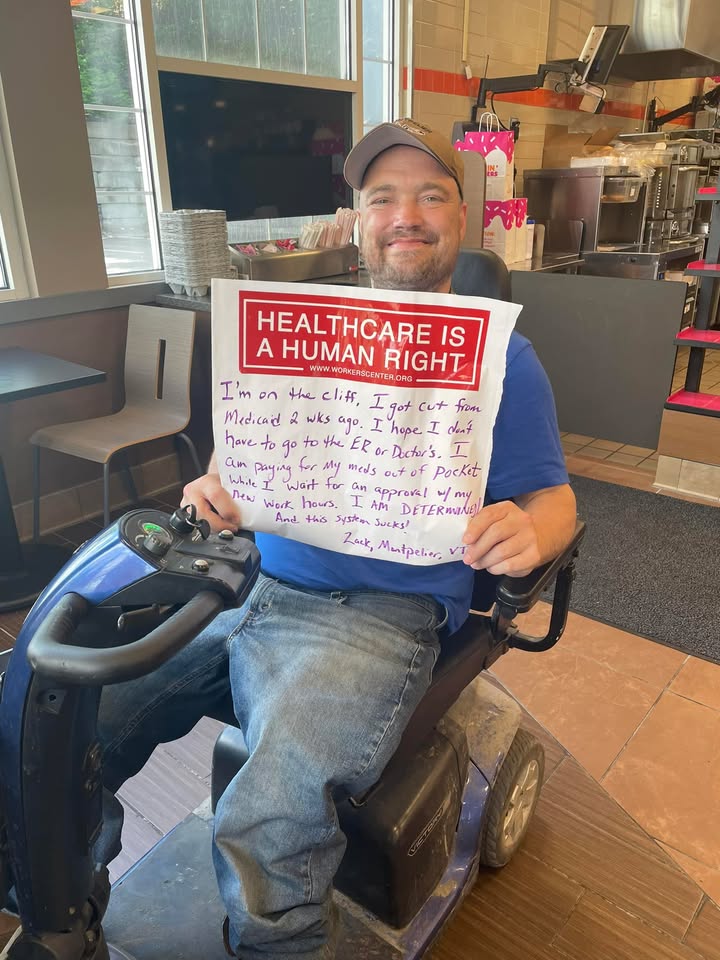 HEALTHCARE IS
A HUMAN RIGHT
WWW.WORKERSCENTER.ORG
I'm on the cliff. I got cut from
Medicaid 2 wks ago. I hope I don't
have to go to the ER or Doctor's. I
am paying for my meds out of pocket
while I wait for an approval w/ my
new work hours. I AM DETERMINED!
And this system sucks!
Zack, Montpelier, VT
VICTORY